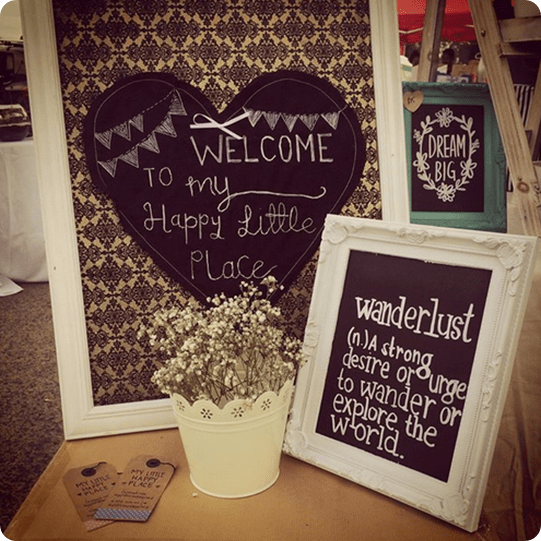 WELCOME
TO my
Happy Little
Place
DREAM
BIG
wanderlust
(n.) A strong
desire or urge
to wander or
explore the
world.
MY LITTLE
HAPPY
PLACE
MY LITTLE
HAPPY PLACE